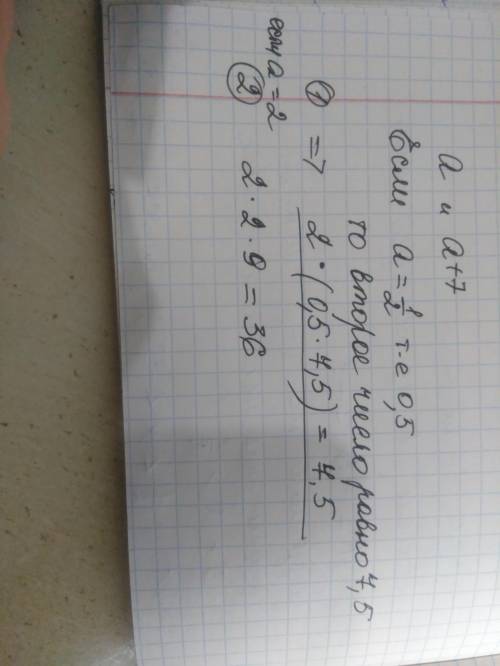 а и а+7
Если а = 1/2 т.е 0,5
то второе число равно 7,5
① => 2·(0,5·7,5) = 7,5
если а = 2
② 2·2·9 = 36